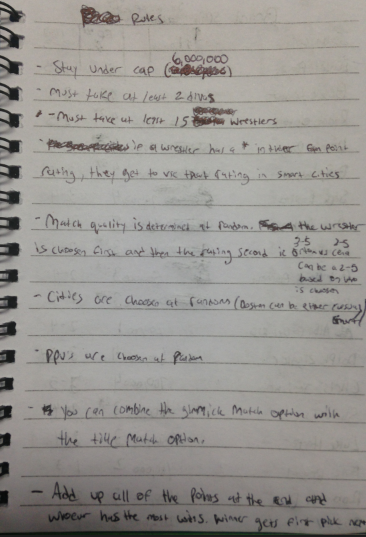 Rules
6,000,000
- Stay under cap (
- Must take at least 2 divas
* - Must take at least 15 wrestlers
- if a wrestler has a * in their fan point
rating, they get to use that rating in smart cities
- Match quality is determined at random. the wrestler
is chosen first and then the rating second
can be 2-5
based on who
is chosen
- Cities are chosen at random (Boston can be either
- PPVs are chosen at random
- You can combine the gimmick match option with
the title match option.
- Add up all of the points at the end and
whoever has the most wins. Winner gets first pick